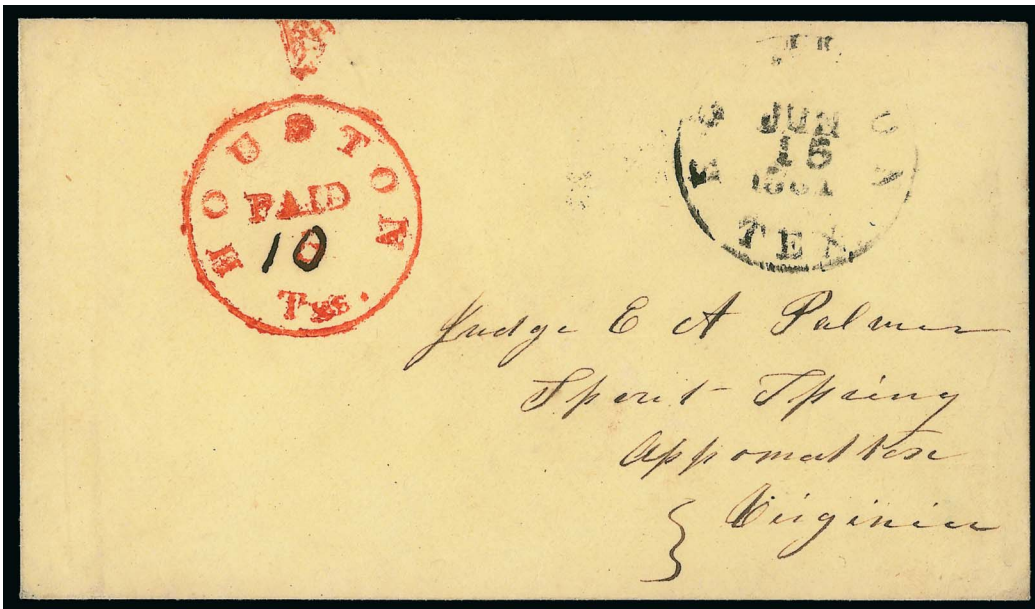 HOUSTON
PAID
10
Txs.
JUN
15
1861
TEX
Judge E A Palmer
Spout Spring
Appomattox
Virginia